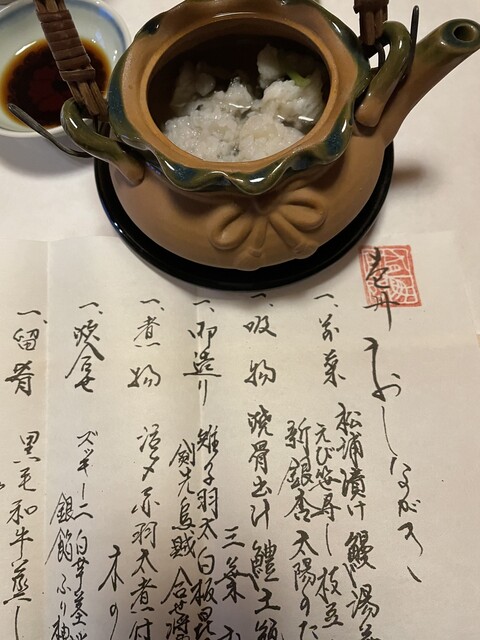 おしながき
一、前菜 松浦漬け 鰻湯
えび笹寿し 枝豆
新銀杏 太陽のた
一、吸物 焼骨出汁 鱧土瓶
三葉
一、御造り 雉子羽太 白板昆
剣先烏賊 合せ醤
一、煮物 活〆赤羽太煮付
木の
一、炊合せ ズッキーニ 白芋茎
銀餡 ふり柚
一、留肴 黒毛和牛蒸し